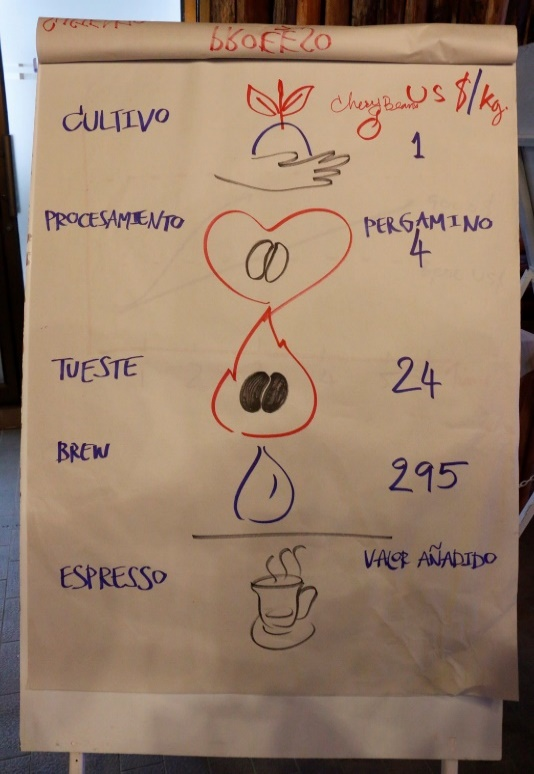 CULTIVO
Cherry Beans US $/kg.
1
PROCESAMIENTO
PERGAMINO
4
TUESTE
24
BREW
295
ESPRESSO
VALOR AÑADIDO